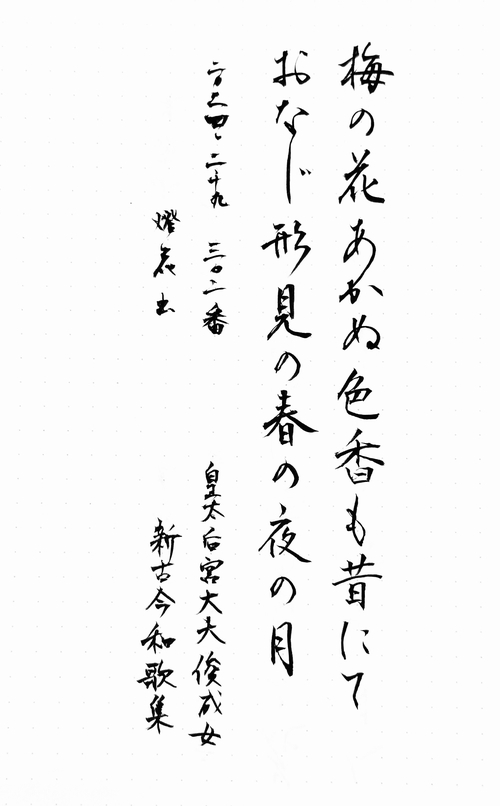 梅の花あかぬ色香も昔にて
おなじ形見の春の夜の月
二〇二四、二十九 三〇二番
皇太后宮大夫俊成女
燈花
新古今和歌集